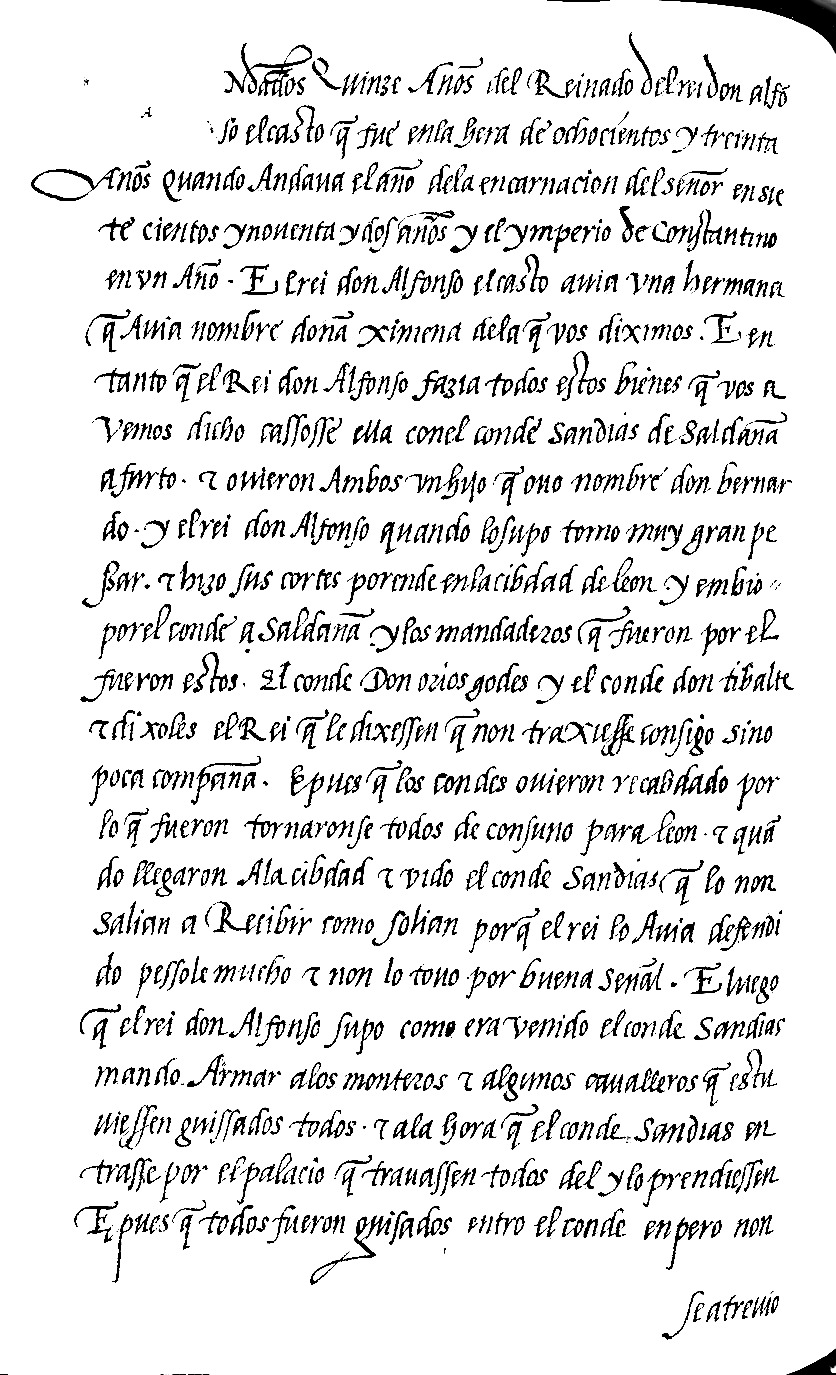 Ndados Quinze Años del Reinado del rei don alfõ
so el casto q̃ fue en la hera de ochocientos y treinta
Años quando Andaua el año dela encarnacion del señor en sie
te cientos y nouenta y dos años y el ymperio de Constantino
en vn Año. El rei don Alfonso el casto auia vna hermana
q̃ Auia nombre doña ximena dela q̃ vos diximos. E en
tanto q̃ el Rei don Alfonso fazia todos estos bienes q̃ vos a
vemos dicho cassosse ella con el conde Sandias de Saldaña
a furto. τ ouieron Ambos vn hijo q̃ ouo nombre don bernar
do. y el rei don Alfonso quando lo supo tomo muy gran pe
ssar. τ hizo sus cortes porende en la cibdad de leon y embio
por el conde a Saldaña y los mandaderos q̃ fueron por el
fueron estos. El conde Don orios godes y el conde don tibalte
τ dixoles el Rei q̃ le dixessen q̃ non traxiesse consigo sino
poca compaña. E pues q̃ los condes ouieron recabdado por
lo q̃ fueron tornaronse todos de consuno para leon. τ quã
do llegaron A la cibdad τ vido el conde Sandias q̃ lo non
salian a Recibir como solian porq̃ el rei lo Auia defendi
do pessole mucho τ non lo touo por buena señal. E luego
q̃ el rei don Alfonso supo como era venido el conde Sandias
mando Armar a los monteros τ algunos caualleros q̃ estu
uiessen guissados todos. τ a la hora q̃ el conde Sandias en
trasse por el palacio q̃ trauassen todos del y lo prendiessen
E pues q̃ todos fueron guisados entro el conde enpero non
se atreuio